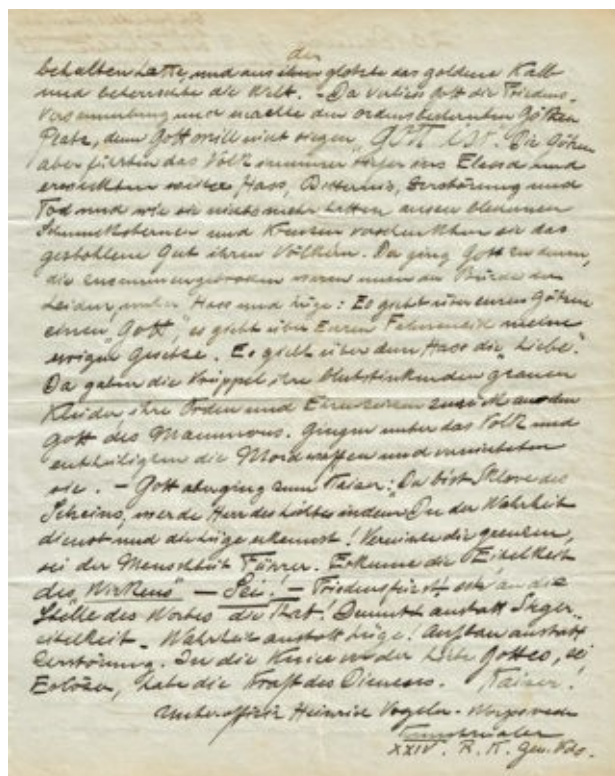 der
behalten hatte, und aus ihm glotzte das goldene Kalb
und beherrschte die Welt. – Da verliess Gott die Friedens-
versammlung und machte den ordensbesternten Götzen
Platz, denn Gott will nicht siegen "GOTT IST". Die Götzen
aber führten das Volk immer tiefer ins Elend und
erweckten weiter Hass, Bitternis, Zerstörung und
Tod und wie sie nichts mehr hatten ausser blechernen
Schmucksternen und Kreuzen verschenkten sie das
gestohlene Gut ihren Völkern. Da ging Gott zu denen,
die zusammengebrochen waren unter der Bürde der
Leiden, unter Hass und Lüge: Es giebt über euren Götzen
einen "Gott", es giebt über Euren Fahneneid meine
ewigen Gesetze. Es giebt über dem Hass die "Liebe".
Da gaben die Krüppel ihre blutstinkenden grauen
Kleider, ihre Orden und Ehrenzeichen zurück an den
Gott des Mammons. gingen unter das Volk und
entheiligten die Mordwaffen und vernichteten
sie. – Gott aber ging zum Kaiser: Du bist Sklave des
Scheins, werde Herr des Lichtes indem Du der Wahrheit
dienst und die Lüge erkennst! Vernichte die grenzen,
sei der Menschheit Führer. Erkenne die Eitelkeit
des "Wirkens" – Sei! – Friedensfürst an die
Stelle des Wortes die That! Demuth anstatt Sieger-
eitelkeit – Wahrheit anstatt Lüge! Aufbau anstatt
Zerstörung. In die Kniee vor der Liebe Gottes, sei
Erlöser, habe die Kraft des Dienens. Kaiser!
Unteroffizier Heinrich Vogeler – Worpswede
XXIV. R. K. Gen. Kdo.